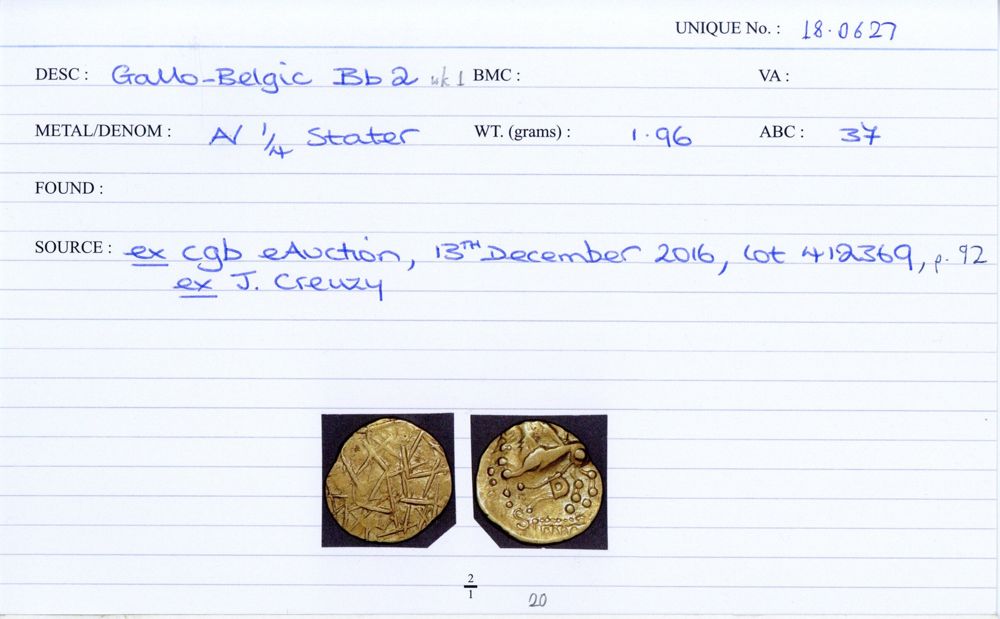 UNIQUE No. : 18·0627
DESC : Gallo-Belgic Bb2 uk1 BMC : VA :
METAL/DENOM : A/ 1/4 Stater WT. (grams) : 1·96 ABC : 37
FOUND :
SOURCE : ex cgb eAuction, 13TH December 2016, lot 412369, p. 92
ex J. Creuzy
2/1
20